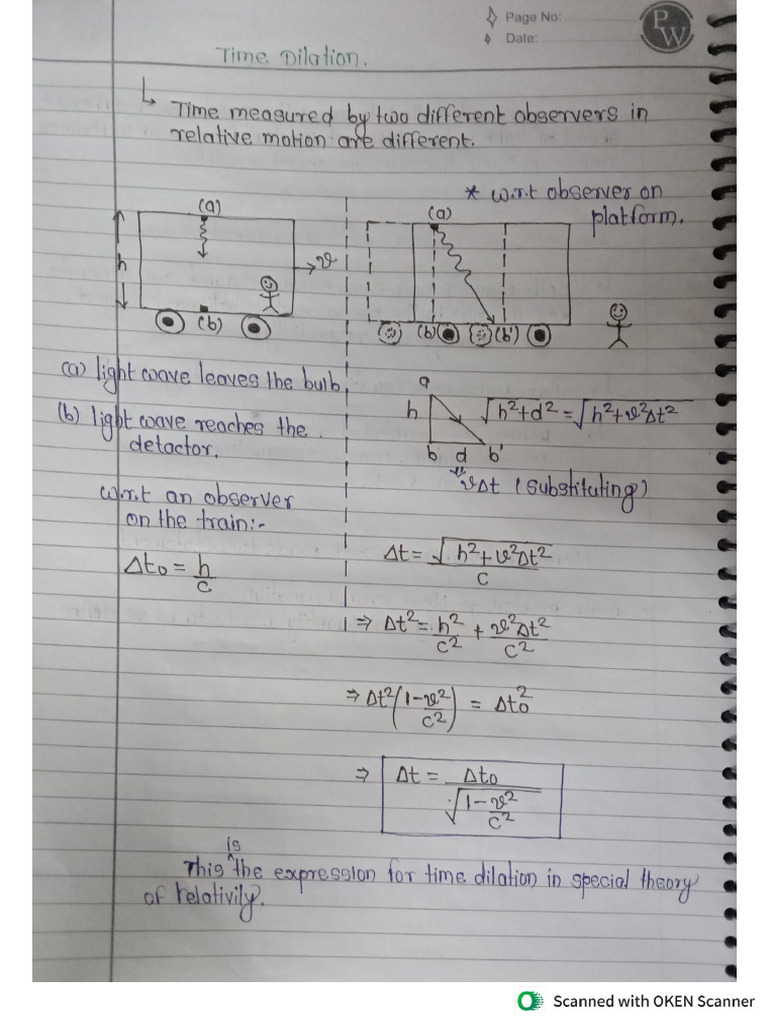 Page No:
Date:
PW
Time Dilation.
Time measured by two different observers in
relative motion are different.
* w.r.t observer on
platform.
(a)
h
→ v
(b)
(a)
(b)
(b')
(a) light wave leaves the bulb.
(b) light wave reaches the
detactor.
w.r.t an observer
on the train:-
Δt₀ = h/c
a
h
b d b'
√h²+d² = √h²+v²Δt²
vΔt (substituting)
Δt = √h²+v²Δt² / c
⇒ Δt² = h²/c² + v²Δt²/c²
⇒ Δt²(1-v²/c²) = Δt₀²
⇒ Δt = Δt₀ / √1-v²/c²
This is the expression for time dilation in special theory
of relativily.
Scanned with OKEN Scanner